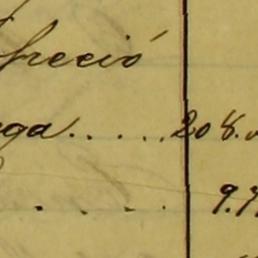 preció
ga..... 208.
.... 9.7